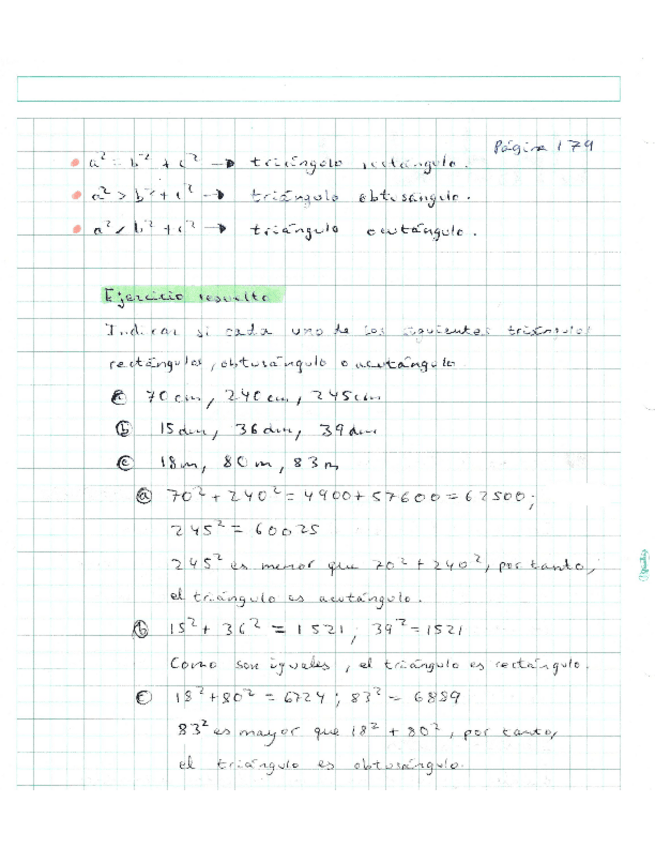 Página 179
• a² = b² + c² → triángulo rectángulo.
• a² > b² + c² → triángulo obtusángulo.
• a² < b² + c² → triángulo acutángulo.
Ejercicio resuelto
Indicar si cada uno de los siguientes triángulos
rectángulos, obtusángulo o acutángulo
ⓐ 70 cm, 240 cm, 245 cm
ⓑ 15 dm, 36 dm, 39 dm
ⓒ 18 m, 80 m, 83 m
ⓐ 70² + 240² = 4900 + 57600 = 62500;
245² = 60025
245² es menor que 70² + 240², por tanto,
el triángulo es acutángulo.
ⓑ 15² + 36² = 1521; 39² = 1521
Como son iguales, el triángulo es rectángulo.
ⓒ 18² + 80² = 6724; 83² = 6889
83² es mayor que 18² + 80², por tanto,
el triángulo es obtusángulo.